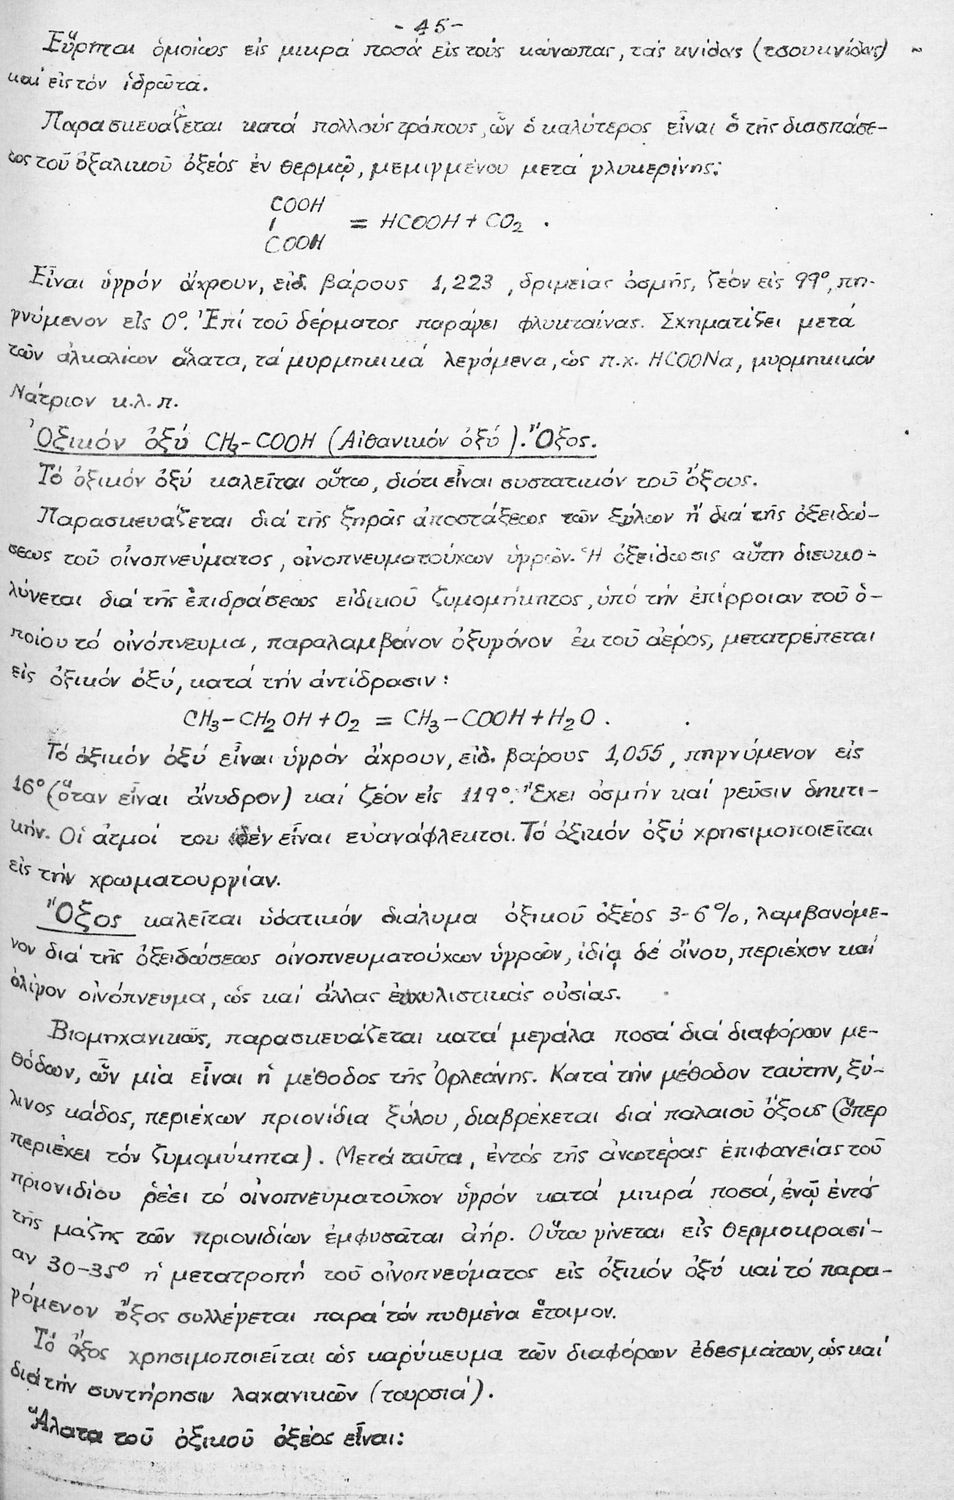 - 45 -
Εὕρηται ὁμοίως εἰς μικρά ποσά εἰς τούς κώνωπας, τάς κνίδας (τσουκνίδας) ~
καί εἰς τόν ἱδρῶτα.
Παρασκευάζεται κατά πολλούς τρόπους, ὧν ὁ καλύτερος εἶναι ὁ τῆς διασπάσε-
ως τοῦ ὀξαλικοῦ ὀξέος ἐν θερμῷ, μεμιγμένου μετά γλυκερίνης:
COOH
ı = HCOOH + CO₂ .
COOH
Εἶναι ὑγρόν ἄχρουν, εἰδ. βάρους 1,223, δριμείας ὀσμῆς, ζέον εἰς 99°, πη-
γνύμενον εἰς 0°. Ἐπί τοῦ δέρματος παράγει φλυκταίνας. Σχηματίζει μετά
τῶν ἀλκαλίων ἅλατα, τά μυρμηκικά λεγόμενα, ὡς π.χ. HCOONa, μυρμηκικόν
Νάτριον κ.λ.π.
Ὀξικόν ὀξύ CH₃-COOH (Αἰθανικόν ὀξύ). Ὄξος.
Τό ὀξικόν ὀξύ καλεῖται οὕτω, διότι εἶναι συστατικόν τοῦ ὄξους.
Παρασκευάζεται διά τῆς ξηρᾶς ἀποστάξεως τῶν ξύλων ἤ διά τῆς ὀξειδώ-
σεως τοῦ οἰνοπνεύματος, οἰνοπνευματούχων ὑγρῶν. Ἡ ὀξείδωσις αὕτη διευκο-
λύνεται διά τῆς ἐπιδράσεως εἰδικοῦ ζυμομήκητος, ὑπό τήν ἐπίρροιαν τοῦ ὁ-
ποίου τό οἰνόπνευμα, παραλαμβάνον ὀξυγόνον ἐκ τοῦ ἀέρος, μετατρέπεται
εἰς ὀξικόν ὀξύ, κατά τήν ἀντίδρασιν:
CH₃-CH₂OH + O₂ = CH₃-COOH + H₂O .
Τό ὀξικόν ὀξύ εἶναι ὑγρόν ἄχρουν, εἰδ. βάρους 1,055, πηγνύμενον εἰς
16° (ὅταν εἶναι ἄνυδρον) καί ζέον εἰς 119°. Ἔχει ὀσμήν καί γεῦσιν δηκτι-
κήν. Οἱ ἀτμοί του δέν εἶναι εὐανάφλεκτοι. Τό ὀξικόν ὀξύ χρησιμοποιεῖται
εἰς τήν χρωματουργίαν.
Ὄξος καλεῖται ὑδατικόν διάλυμα ὀξικοῦ ὀξέος 3-6%, λαμβανόμε-
νον διά τῆς ὀξειδώσεως οἰνοπνευματούχων ὑγρῶν, ἰδίᾳ δέ οἴνου, περιέχον καί
ὀλίγον οἰνόπνευμα, ὡς καί ἄλλας ἐκχυλιστικάς οὐσίας.
Βιομηχανικῶς, παρασκευάζεται κατά μεγάλα ποσά διά διαφόρων με-
θόδων, ὧν μία εἶναι ἡ μέθοδος τῆς Ὀρλεάνης. Κατά τήν μέθοδον ταύτην, ξύ-
λινος κάδος, περιέχων πριονίδια ξύλου, διαβρέχεται διά παλαιοῦ ὄξους (ὅπερ
περιέχει τόν ζυμομύκητα). Μετά ταῦτα, ἐντός τῆς ἀνωτέρας ἐπιφανείας τοῦ
πριονιδίου ρέει τό οἰνοπνευματοῦχον ὑγρόν κατά μικρά ποσά, ἐνῷ ἐντός
τῆς μάζης τῶν πριονιδίων ἐμφυσᾶται ἀήρ. Οὕτω γίνεται εἰς θερμοκρασί-
αν 30-35° ἡ μετατροπή τοῦ οἰνοπνεύματος εἰς ὀξικόν ὀξύ καί τό παρα-
γόμενον ὄξος συλλέγεται παρά τόν πυθμένα ἕτοιμον.
Τό ὄξος χρησιμοποιεῖται ὡς καρύκευμα τῶν διαφόρων ἐδεσμάτων, ὡς καί
διά τήν συντήρησιν λαχανικῶν (τουρσιά).
Ἅλατα τοῦ ὀξικοῦ ὀξέος εἶναι: